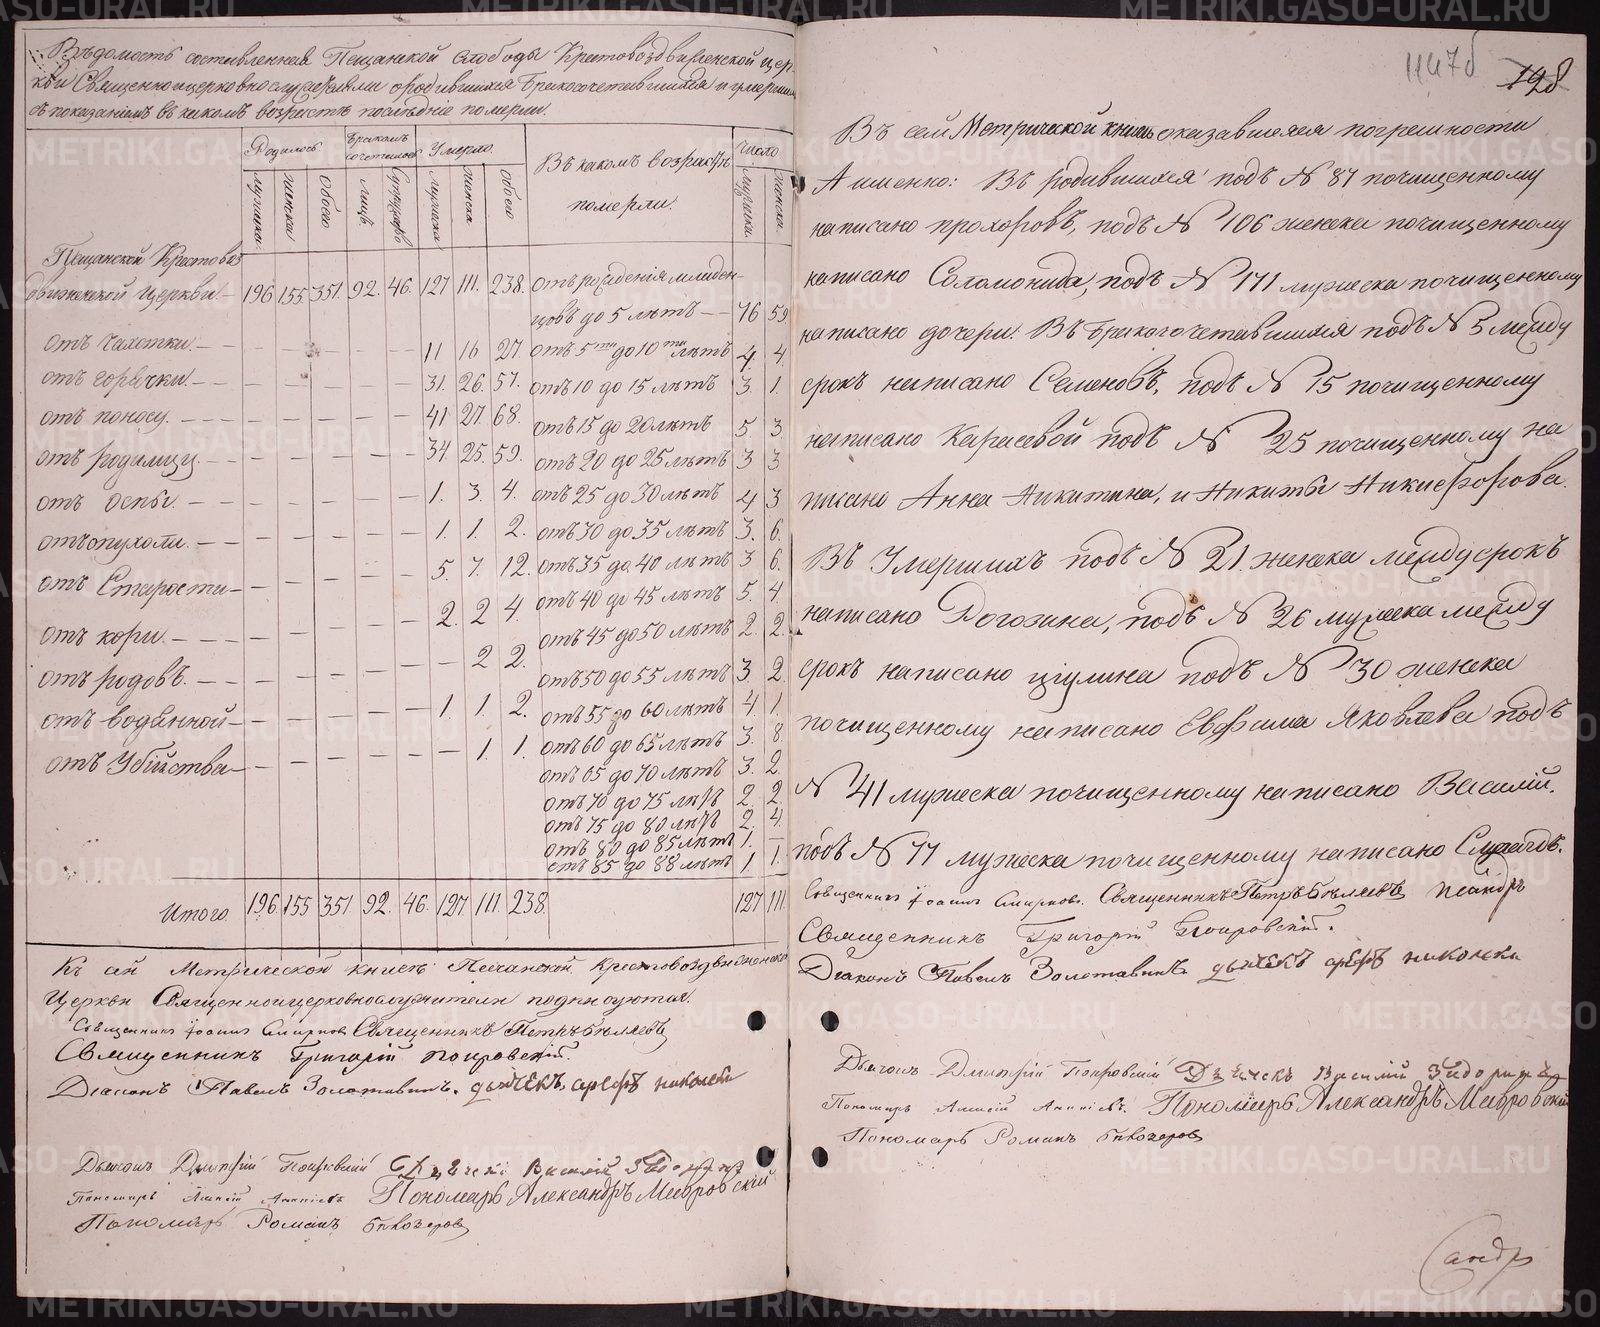 Вѣдомость составленная Пещанской слободы Крестовоздвиженской цер-
кви Священноцерковнослужителями о родившихся Бракосочетавшихся и умершихъ
съ показаніемъ въ какомъ возрастѣ послѣдніе померли.
Родилось Бракомъ сочеталось Умерло. Въ какомъ возрастѣ померли. Число
мужеска. женска обоего лицъ. супружествъ мужеска женска обоего мужеска. женска.
Пещанской Крестовоз
движенской церкви. — 196 155 351. 92. 46. 127 111. 238. отъ рожденія младен-
цовъ до 5 лѣтъ — — 76 59
отъ чахотки. — 11 16 27. отъ 5ти до 10ти лѣтъ 4. 4
отъ горячки. — 31. 26. 57. отъ 10 до 15 лѣтъ 3. 1.
отъ поносу. — 41 27. 68. отъ 15 до 20 лѣтъ 5 3
отъ родимцу. — 34. 25. 59. отъ 20 до 25 лѣтъ 3 3
отъ оспы. — 1. 3. 4. отъ 25 до 30 лѣтъ 4 3
отъ опухоли. — 1. 1. 2. отъ 30 до 35 лѣтъ 3. 6.
отъ Старости — 5. 7. 12. отъ 35 до 40 лѣтъ 3 6.
отъ кори. — 2. 2 4. отъ 40 до 45 лѣтъ 5. 4
отъ 45 до 50 лѣтъ 2. 2.
отъ родовъ. — 2 2. отъ 50 до 55 лѣтъ 3. 2.
отъ водянной — 1. 1. 2. отъ 55 до 60 лѣтъ 4 1.
отъ Убійства — 1 1. отъ 60 до 65 лѣтъ 3. 8
отъ 65 до 70 лѣтъ 3. 2.
отъ 70 до 75 лѣтъ 2. 2
отъ 75 до 80 лѣтъ 2. 4.
отъ 80 до 85 лѣтъ 1. —
отъ 85 до 88 лѣтъ 1 1.
Итого. 196. 155 351 92. 46. 127. 111. 238. 127 111
Къ сей Метрической книгѣ Песчанской Крестовоздвиженской
Церкви Священноицерковнослужители подписуются.
Священникъ Іоаннъ Смирновъ Священникъ Петръ Бѣляевъ
Священникъ Григорій Покровскій.
Діаконъ Павелъ Золотавинъ. дьячекъ
Дьячокъ Дмитрій Покровскій Дьячекъ Василій
Пономарь Пономарь Александръ Мировскій
Пономарь Романъ
1147б 198
Въ сей Метрической книгѣ оказавшіеся погрешности
А именно: Въ родившихся подъ № 87 почищенному
написано прохоровъ, подъ № 106 женска почищенному
написано Соломонида, подъ № 171 мужеска почищенному
написано дочери. Въ Бракосочетавшихся подъ № 5 между
срокъ написано Семеновъ, подъ № 15 почищенному
написано Карасевой подъ № 25 почищенному на
писано Анна Никитина, и Никиты Никифорова.
Въ Умершихъ подъ № 21. женска между срокъ
написано Рогозина, подъ № 26 мужеска между
срокъ написано подъ № 30 женска
почищенному написано Евфима Яковлева подъ
№ 41 мужеска почищенному написано Василій.
подъ № 77 мужеска почищенному написано
Священникъ Іоаннъ Смирновъ. Священникъ Петръ Бѣляевъ
Священникъ Григорій Покровскій.
Діаконъ Павелъ Золотавинъ дьячекъ
Дьячокъ Дмитрій Покровскій Дьячекъ Василій
Пономарь Пономарь Александръ Мировскій
Пономарь Романъ
METRIKI.GASO-URAL.RU